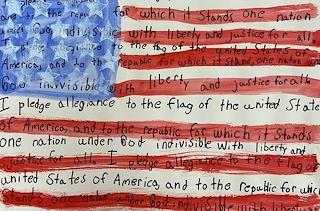 and to the republic for which it Stands one nation
under God, indivisible with liberty and justice for all,
allegiance to the flag of the united States of
America, and to the republic for which it Stand, one nation under
God invivible with liberty and justice for all
I pledge allegiance to the flag of the united State
of America, and to the republic for which it Stands
one nation under God indivisible with liberty and
justice for all, I pledge allegiance to the flag of
united States of America, and to the republic for whic
Stands one nation under God indivisible with liberty